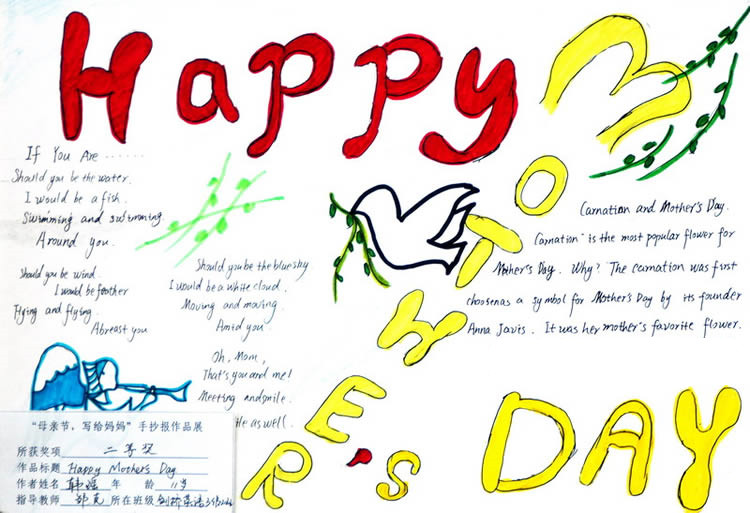 Happy
MOTHER'S
DAY
If You Are ......
Should you be the water.
I would be a fish.
Swimming and swimming
Around you.
Should you be wind.
I would be feather
Flying and flying.
Abreast you
Should you be the blue sky
I would be a white cloud.
Moving and moving.
Amid you
Oh, Mom,
That's you and me!
Meeting and smile.
as well.
Carnation and Mother's Day.
Carnation is the most popular flower for
Mother's Day. Why? The carnation was first
choosen as a symbol for Mother's Day by its founder
Anna Javis. It was her mother's favorite flower.
“母亲节，写给妈妈”手抄报作品展
所获奖项 二等奖
作品标题 Happy Mother's Day
作者姓名 韩 年 龄 11岁
指导教师 所在班级 剑桥英语